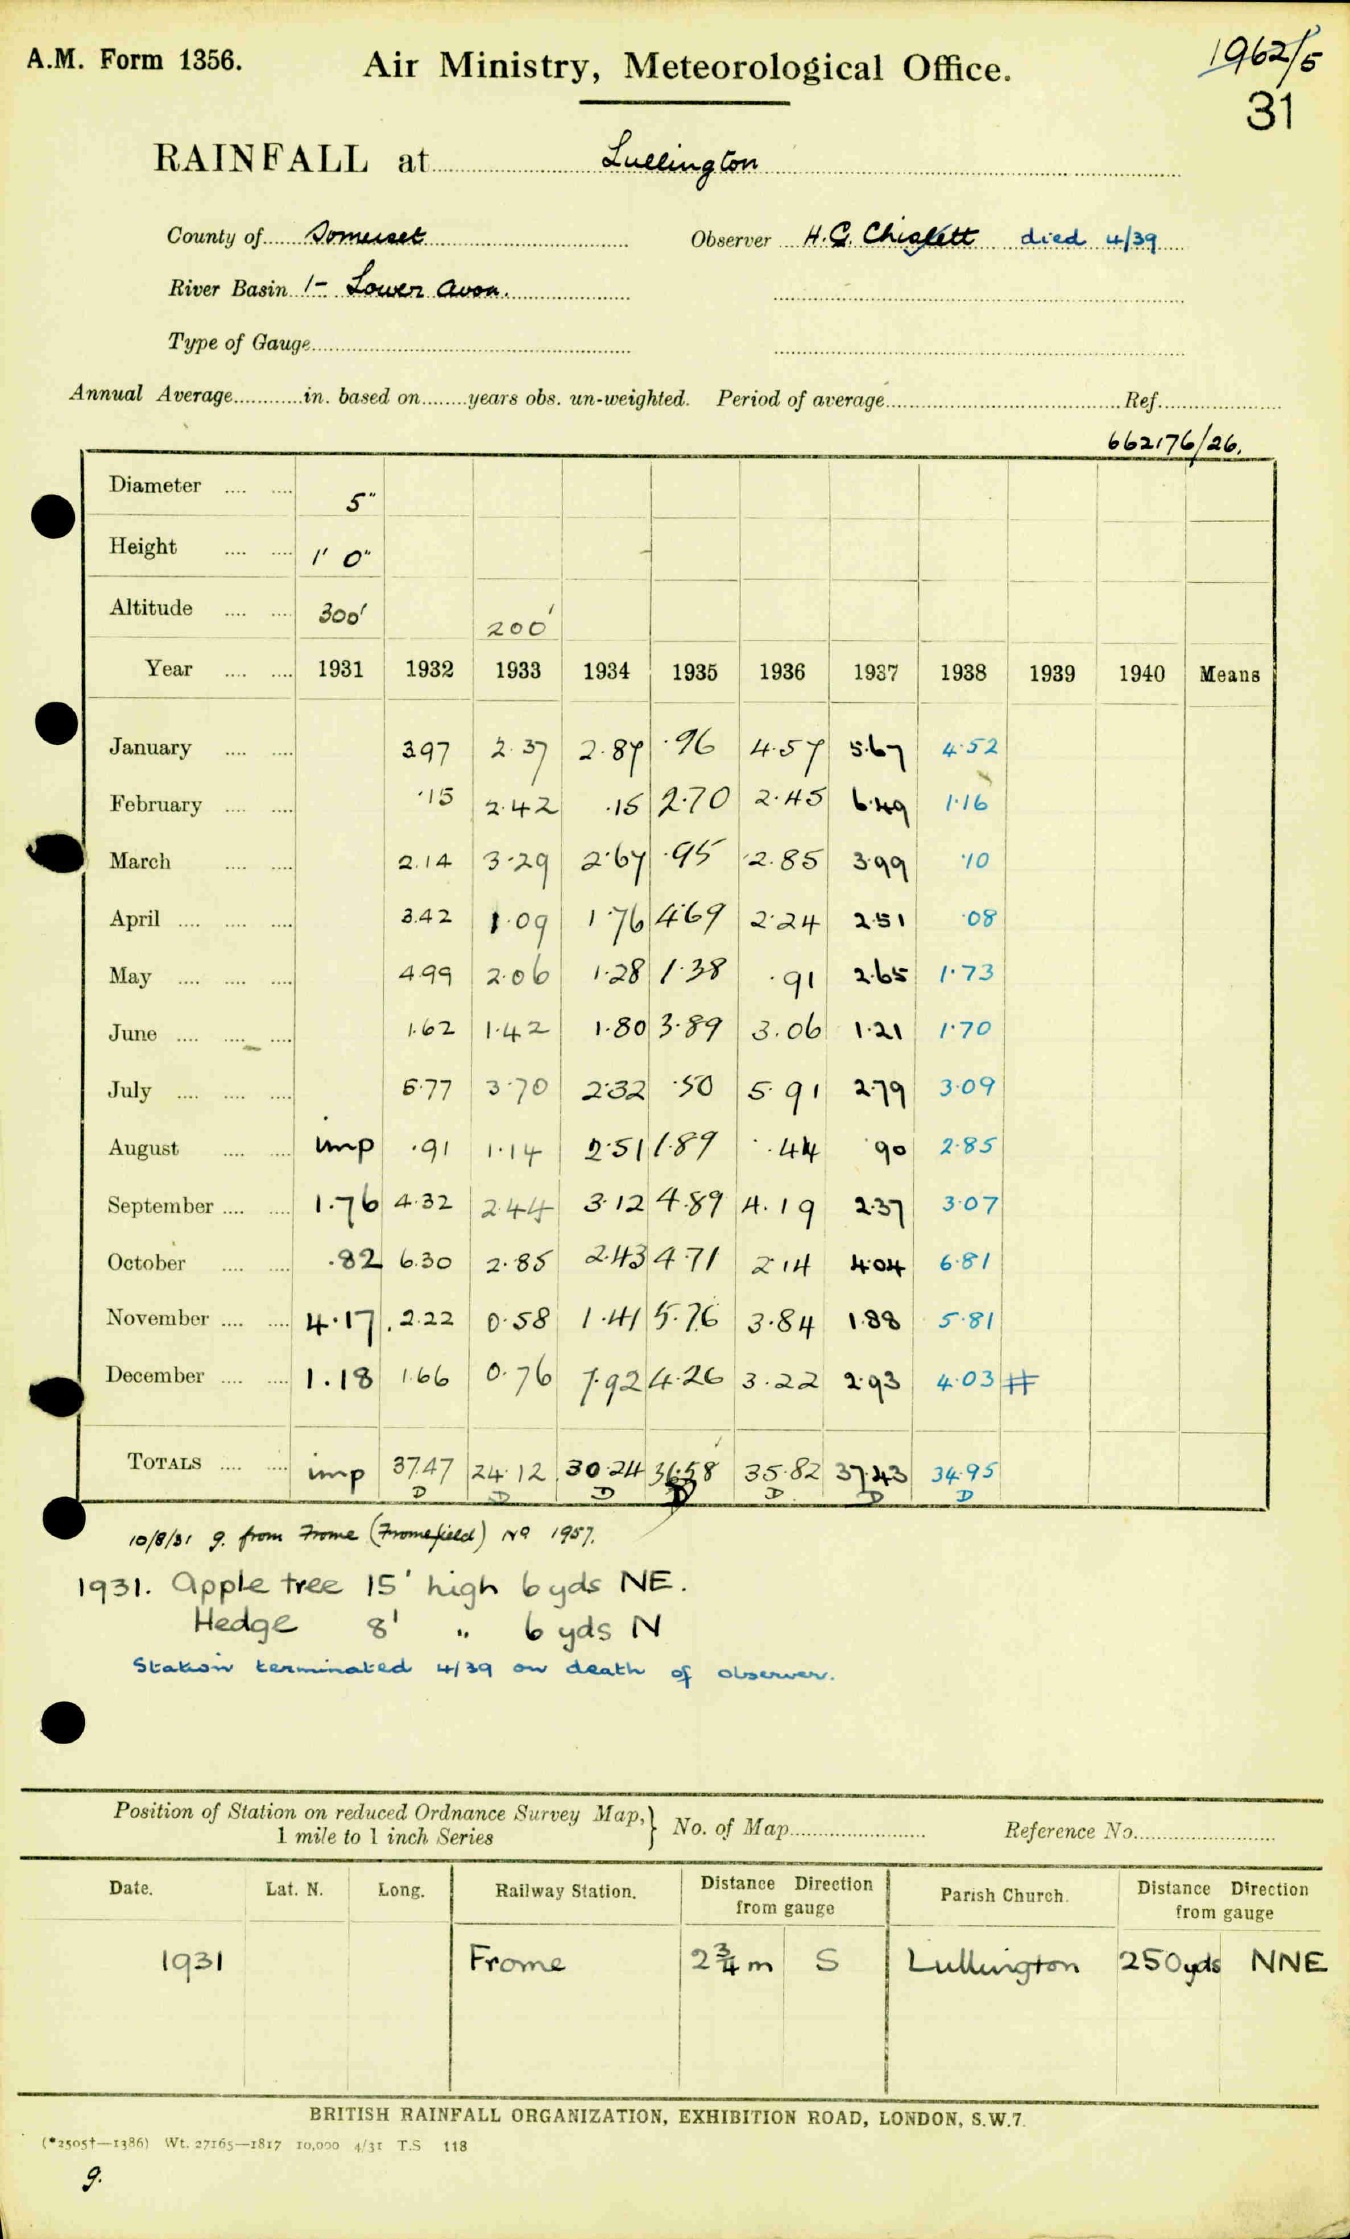 A.M. Form 1356.
Air Ministry, Meteorological Office.
1962/5
31
RAINFALL at Lullington
County of Somerset Observer H.G. Chislett died 4/39
River Basin 1- Lower Avon.
Type of Gauge
Annual Average in. based on years obs. un-weighted. Period of average Ref.
662176/26.
Diameter 5"
Height 1' 0"
Altitude 300' 200'
Year 1931 1932 1933 1934 1935 1936 1937 1938 1939 1940 Means
January 3.97 2.37 2.87 .96 4.57 5.67 4.52
February .15 2.42 .15 2.70 2.45 6.49 1.16
March 2.14 3.29 2.67 .95 2.85 3.99 .10
April 3.42 1.09 1.76 4.69 2.24 2.51 .08
May 4.99 2.06 1.28 1.38 .91 2.65 1.73
June 1.62 1.42 1.80 3.89 3.06 1.21 1.70
July 5.77 3.70 2.32 .50 5.91 2.79 3.09
August imp .91 1.14 2.51 1.89 .44 .90 2.85
September 1.76 4.32 2.44 3.12 4.89 4.19 2.37 3.07
October .82 6.30 2.85 2.43 4.71 2.14 4.04 6.81
November 4.17 2.22 0.58 1.41 5.76 3.84 1.88 5.81
December 1.18 1.66 0.76 7.92 4.26 3.22 2.93 4.03 #
TOTALS imp 37.47 24.12 30.24 36.58 35.82 37.43 34.95
D D D D D D D
10/8/31 g. from Frome (Fromefield) No 1957.
1931. Apple tree 15' high 6 yds NE.
Hedge 8' " 6 yds N
Station terminated 4/39 on death of observer.
Position of Station on reduced Ordnance Survey Map,} No. of Map Reference No.
1 mile to 1 inch Series
Date. Lat. N. Long. Railway Station. Distance Direction from gauge Parish Church. Distance Direction from gauge
1931 Frome 2¾ m S Lullington 250yds NNE
BRITISH RAINFALL ORGANIZATION, EXHIBITION ROAD, LONDON, S.W.7.
(*2505†—1386) Wt. 27165—1817 10,000 4/31 T.S 118
g.